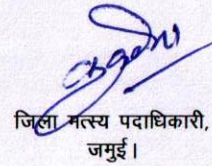 जिला मत्स्य पदाधिकारी,
जमुई।